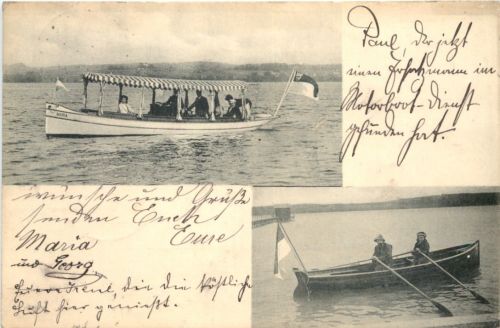 MARIA
Paul, der jetzt
einen Ersatzmann im
Motorboot-Dienst
gefunden hat.
wünsche und Grüße
senden Euch
Maria Eure
und Georg
die die köstliche
Luft hier genießt.